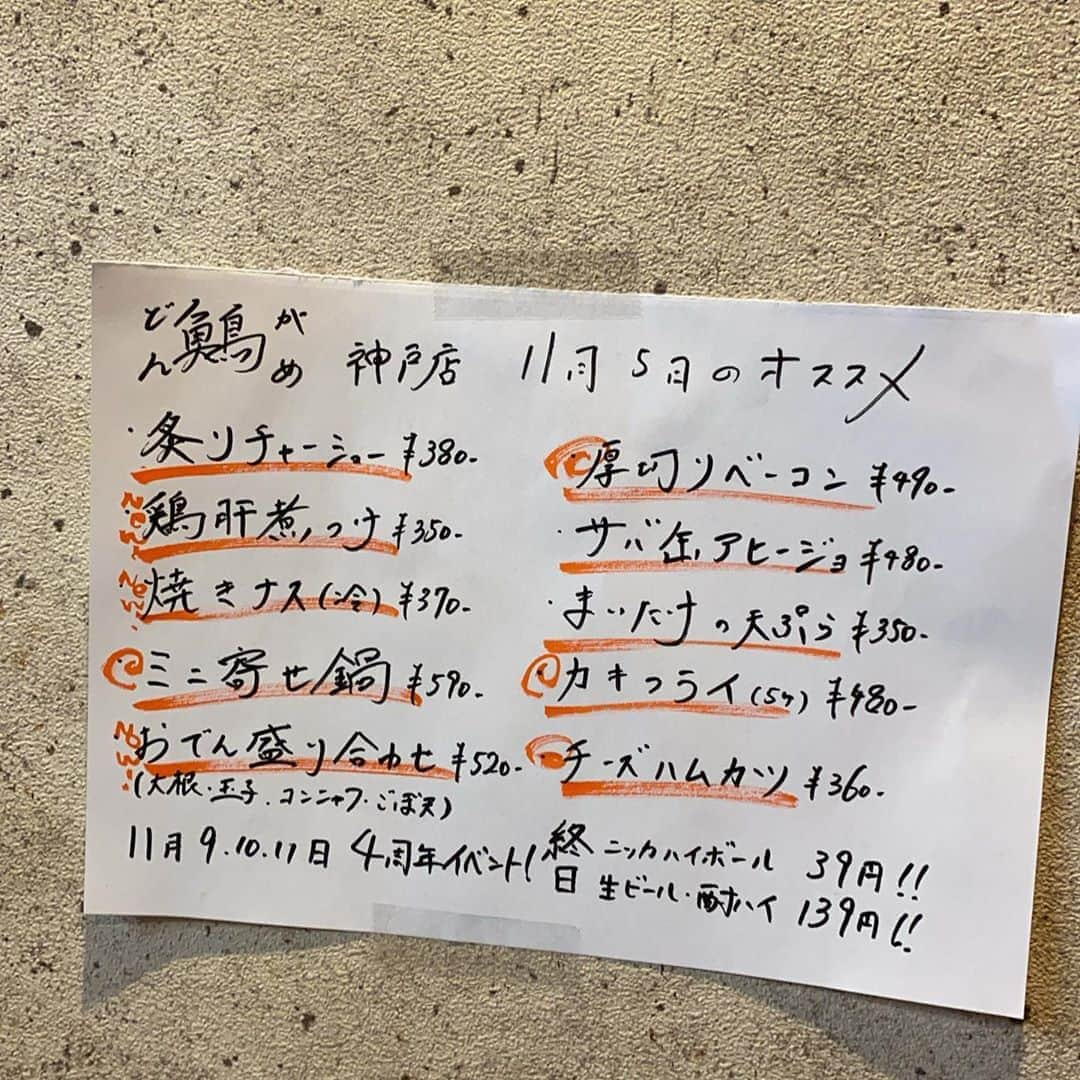 どん 魚鳥 がめ 神戸店 11月5日のオススメ
・炙りチャーシュー ¥380-
・鶏肝煮つけ ¥350-
・焼きナス(冷) ¥370-
・ミニ寄せ鍋 ¥590-
・おでん盛り合わせ ¥520-
(大根・玉子・コンニャク・ごぼ天)
・厚切りベーコン ¥490-
・サバ缶アヒージョ ¥480-
・まいたけの天ぷら ¥350-
・カキフライ(5ケ) ¥480-
・チーズハムカツ ¥360-
11月9.10.11日 4周年イベント!
終日 ニッカハイボール 39円!!
生ビール・酎ハイ 139円!!